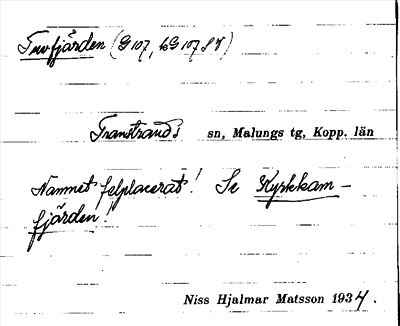 Tuvfjärden (G 107, LG 107 SV)
Transtrands sn, Malungs tg, Kopp. län
Namnet felplacerat! Se Kyrkkam-
fjärden!
Niss Hjalmar Matsson 1934.